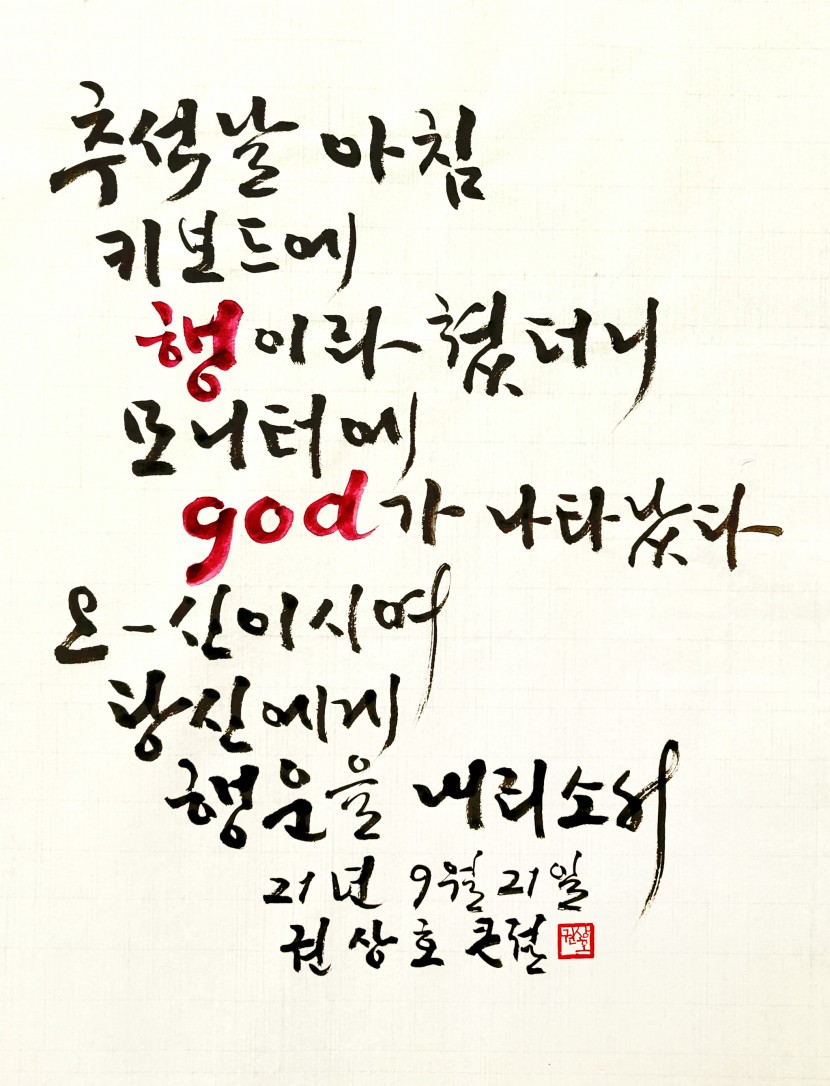 추석날 아침
키보드에
행이라 쳤더니
모니터에
god가 나타났다
오-신이시여
당신에게
행운을 내리소서
21년 9월 21일
권상호 큰절
권상호